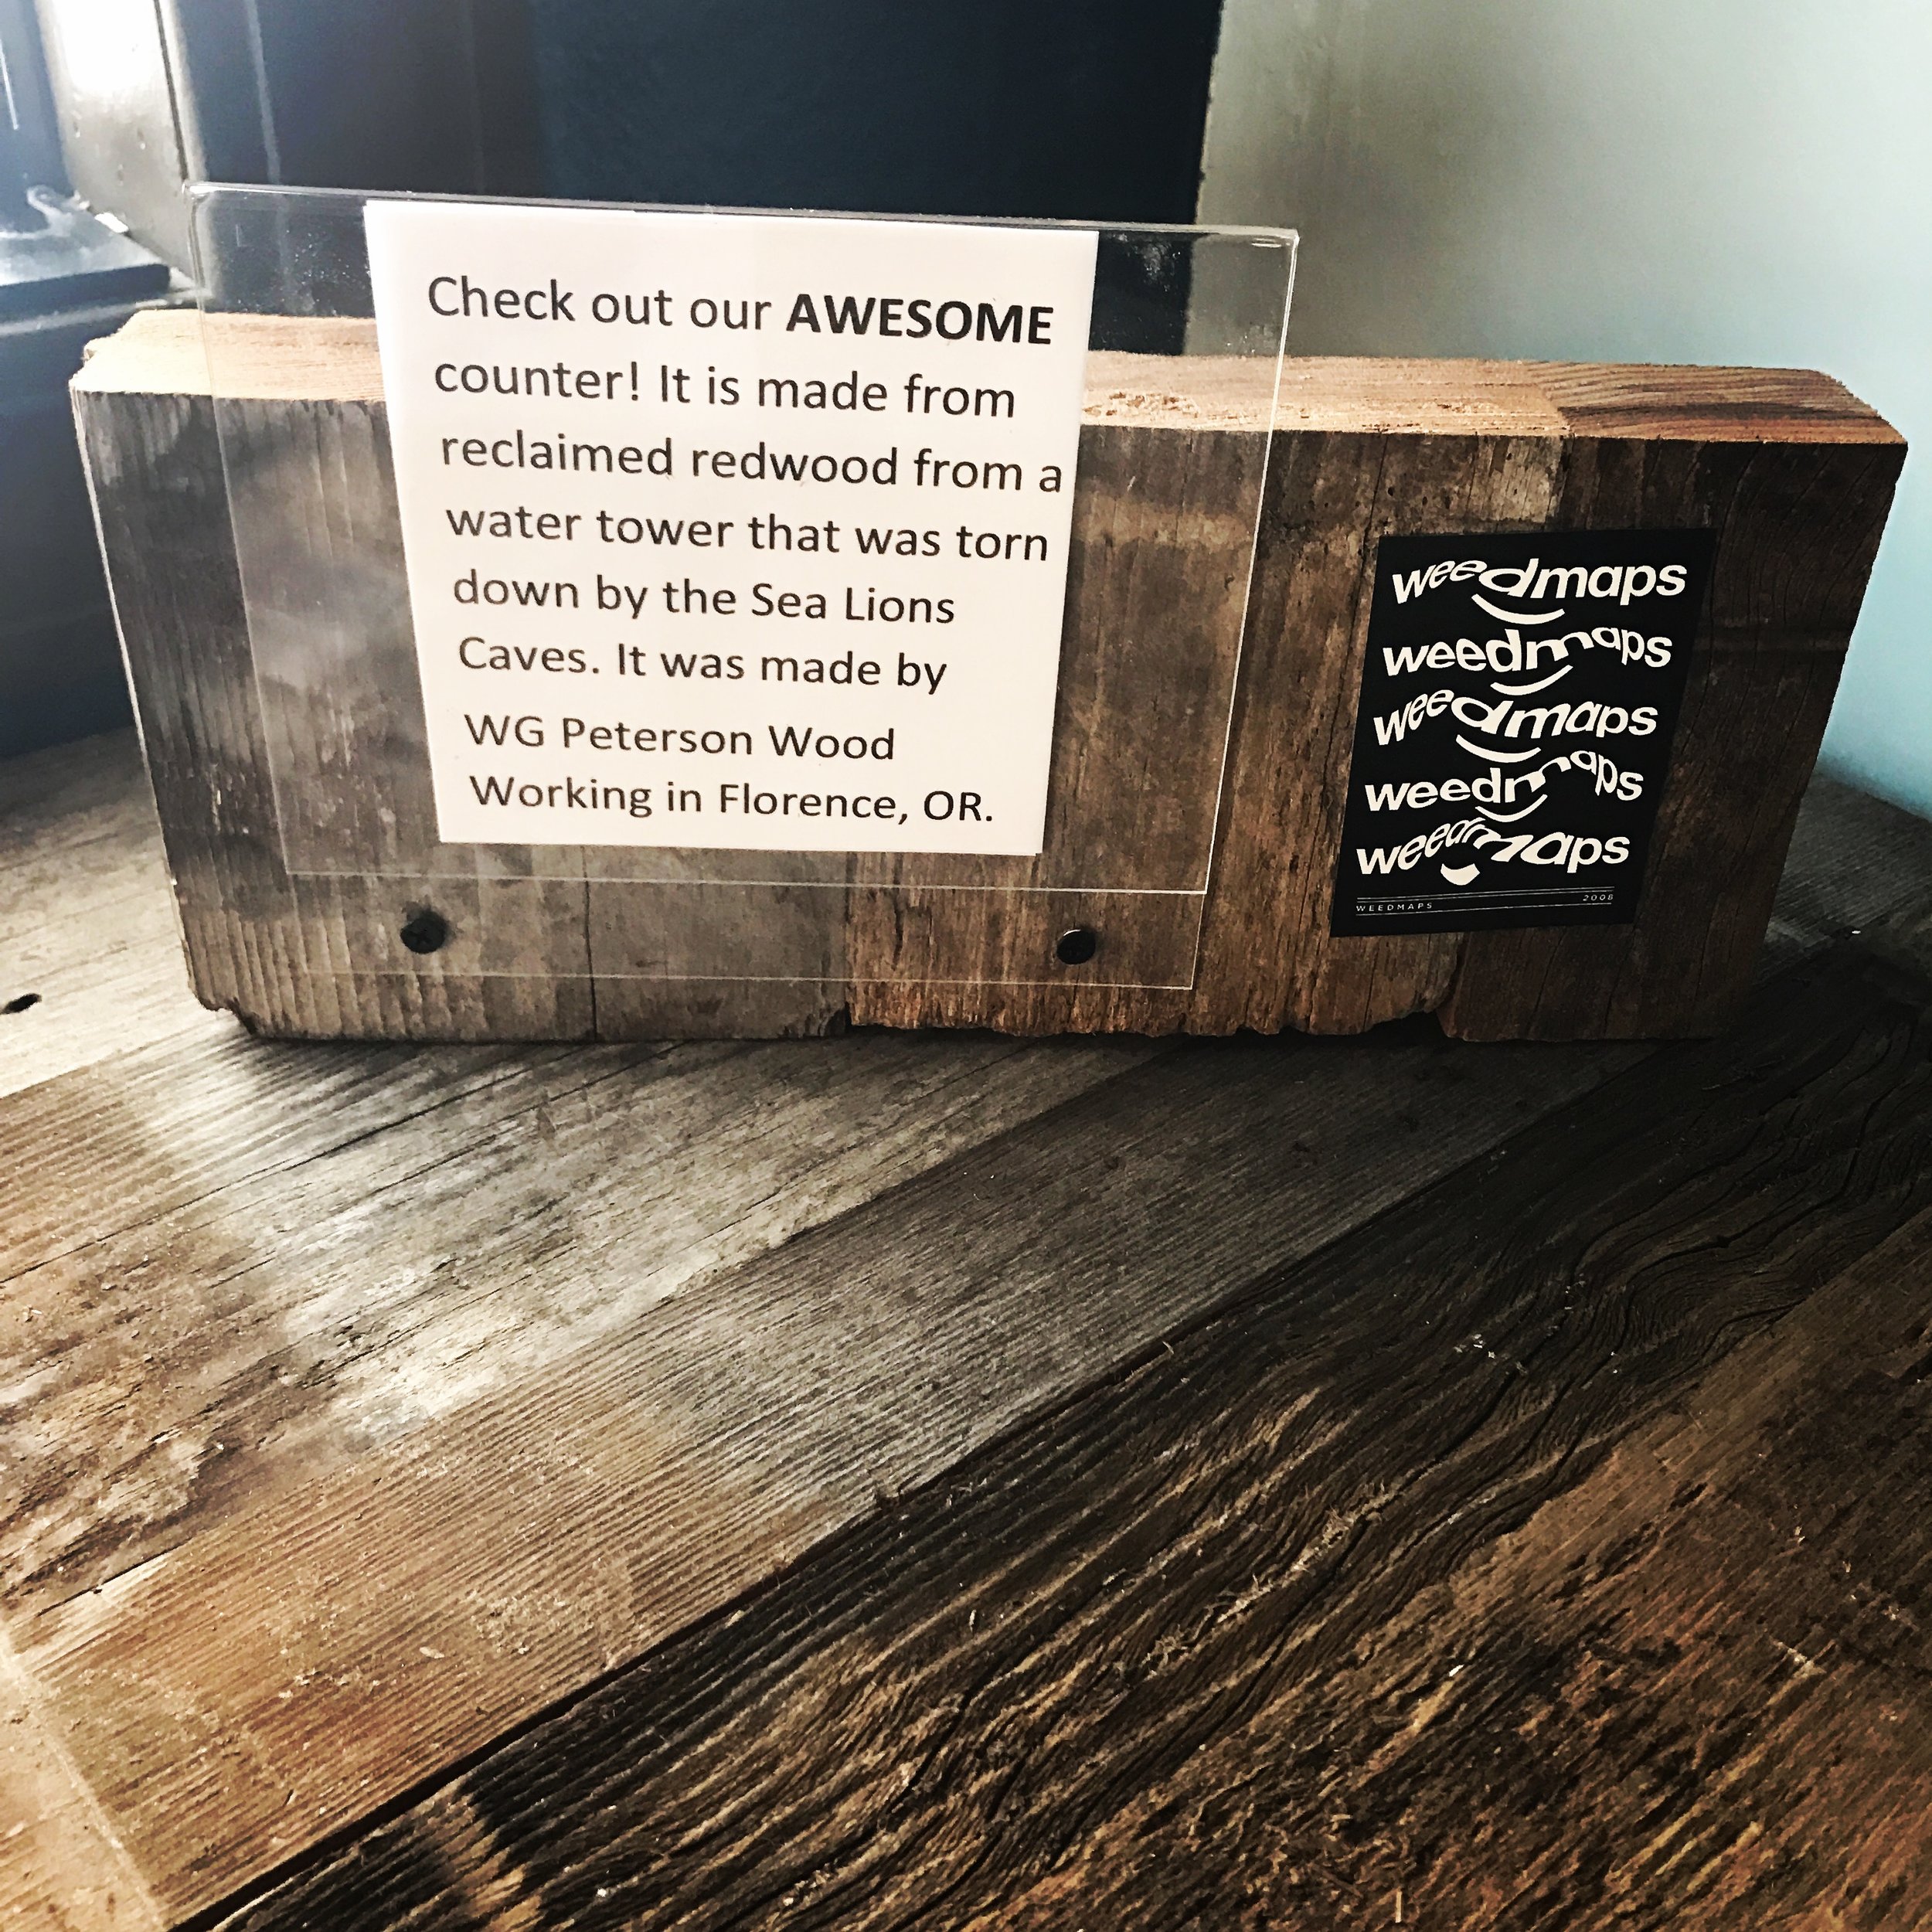 Check out our AWESOME
counter! It is made from
reclaimed redwood from a
water tower that was torn
down by the Sea Lions
Caves. It was made by
WG Peterson Wood
Working in Florence, OR.
weedmaps
weedmaps
weedmaps
weedmaps
weedmaps
WEEDMAPS 2008